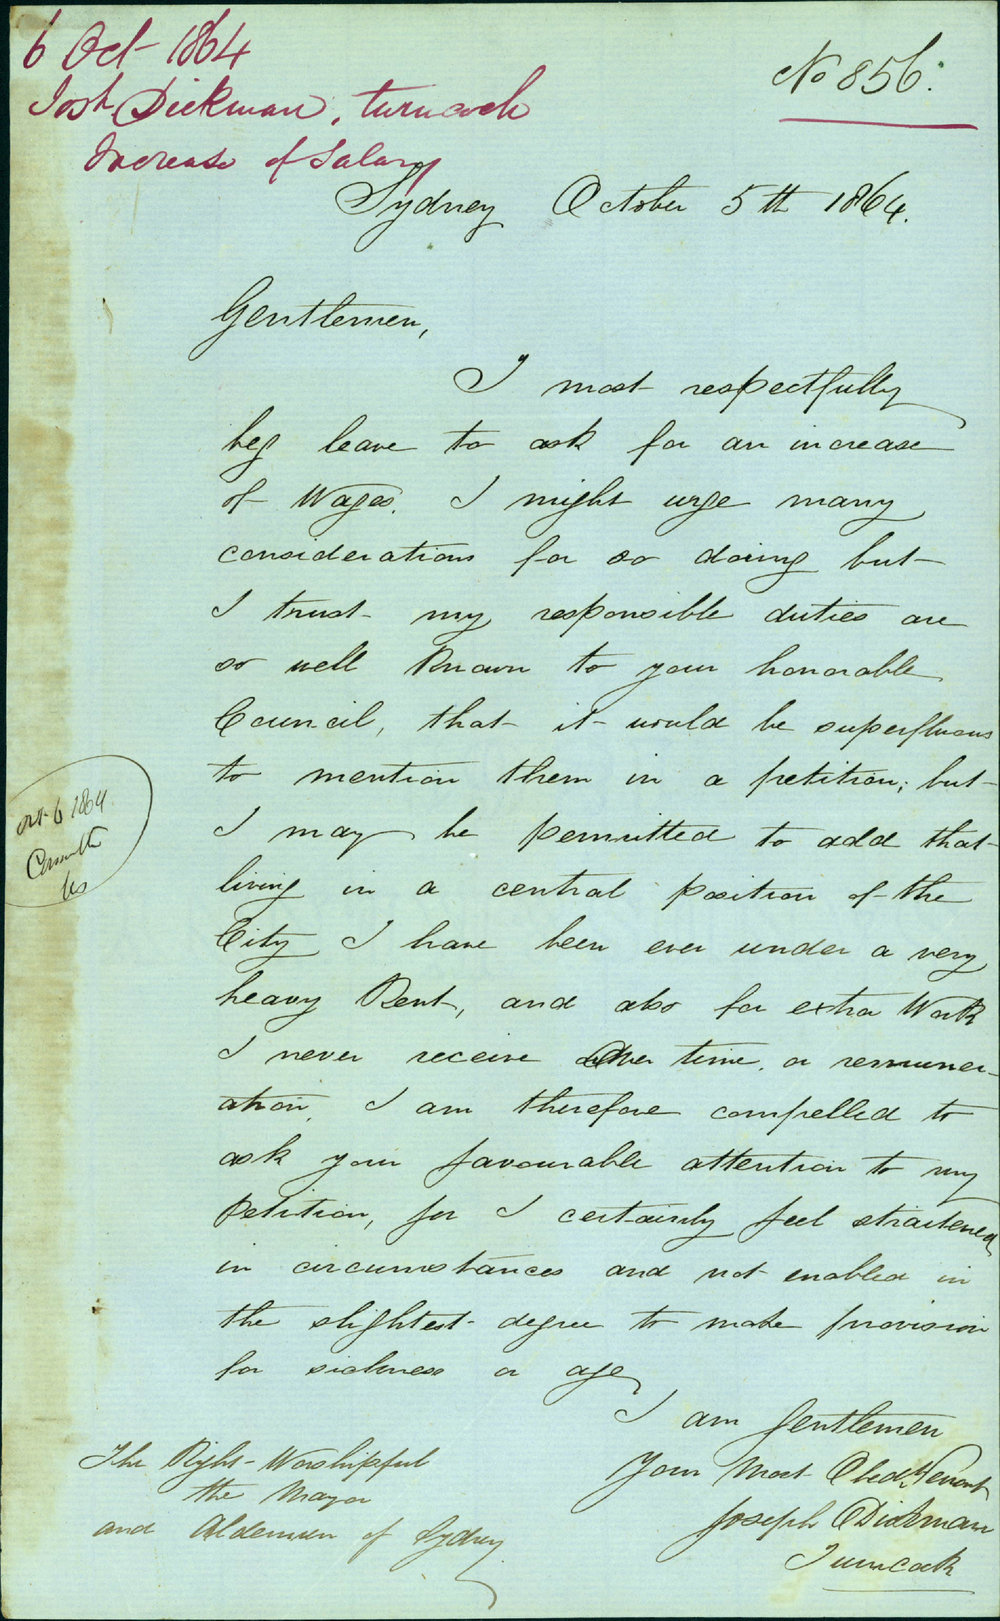 6 Oct 1864
Josh Dickman, turncock
Increase of Salary
No 856.
Sydney October 5th 1864.
Gentlemen,
I most respectfully
beg leave to ask for an increase
of Wages. I might urge many
considerations for so doing but
I trust my responsible duties are
so well known to your honorable
Council, that it would be superfluous
to mention them in a petition; but
I may be permitted to add that
living in a central position of the
City I have been ever under a very
heavy Rent, and also for extra Work
I never receive Over time, or remuner-
ation, I am therefore compelled to
ask your favourable attention to my
Petition, for I certainly feel straitened
in circumstances and not enabled in
the slightest degree to make provision
for sickness or age
I am Gentlemen
Your Most Obedt Servant
Joseph Dickman
Turncock
The Right Worshipful
the Mayor
and Aldermen of Sydney
Oct 6 1864